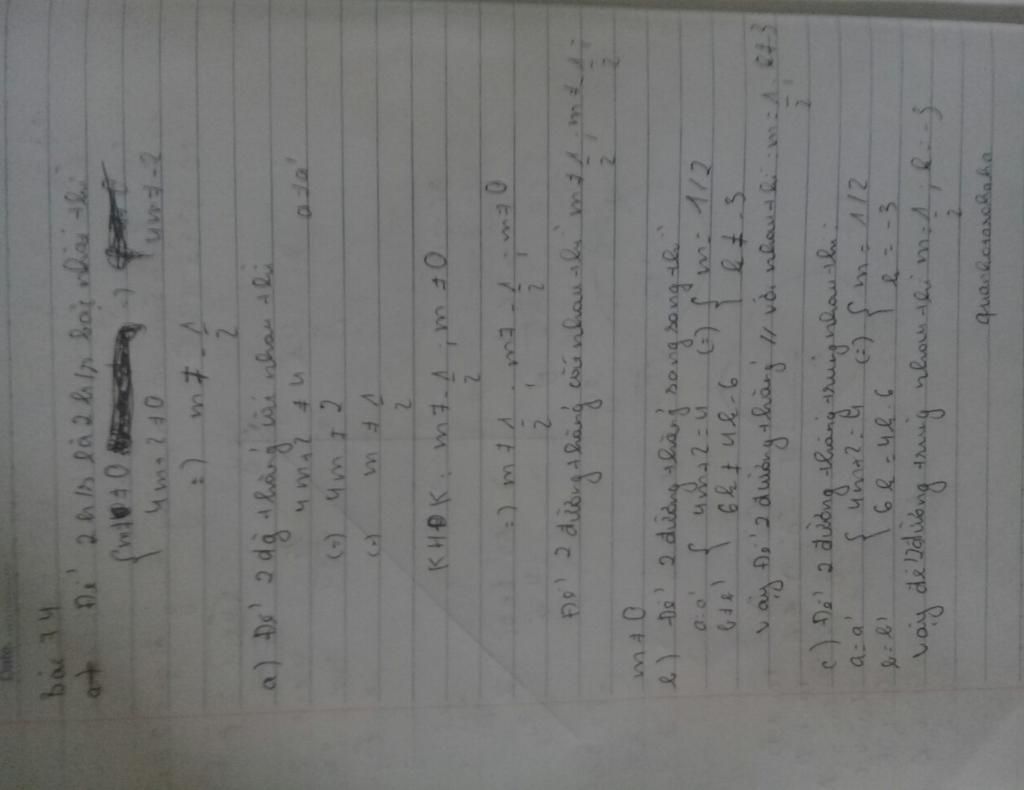 bài 34
Để 2 h/s là 2 h/s bậc nhất thì
m ≠ 0
4m+2 ≠ 0 4m ≠ -2
=) m ≠ -1/2
a) Để 2 đg thẳng cắt nhau thì a ≠ a'
4m+2 ≠ 4
(=) 4m ≠ 2
(=) m ≠ 1/2
KHĐK: m ≠ -1/2, m ≠ 0
=) m ≠ 1/2, m ≠ -1/2, m ≠ 0
Để 2 đường thẳng cắt nhau thì m ≠ 1/2, m ≠ -1/2,
m ≠ 0
b) Để 2 đường thẳng song song thì
a=a' { 4m+2=4 (=) { m=1/2
b≠b' { 6k ≠ 4k-6 { k ≠ -3
vậy Để 2 đường thẳng // với nhau thì m=1/2,
c) Để 2 đường thẳng trùng nhau thì
a=a' { 4m+2=4 (=) { m=1/2
b=b' { 6k=4k-6 { k=-3
vậy để 2 đường trùng nhau thì m=1/2; k=-3